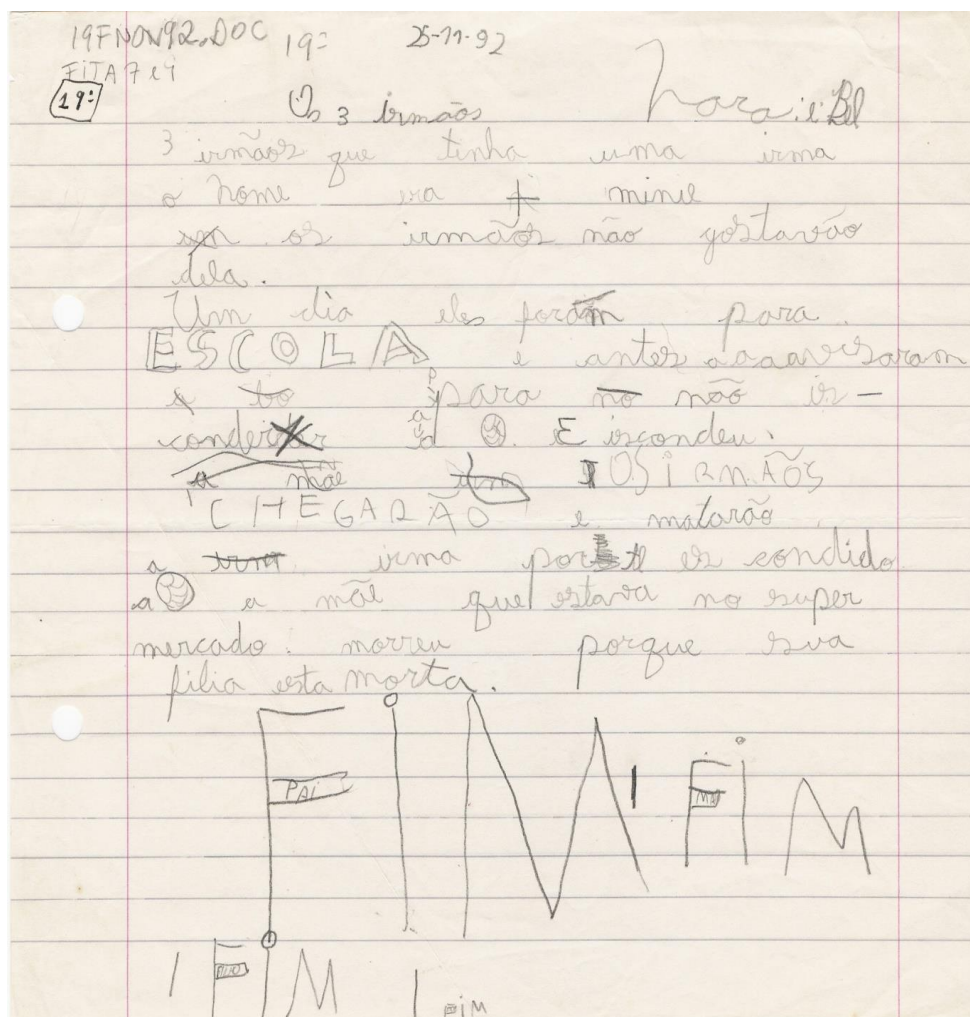 19FNOV92.DOC 19ª 25-11-92
FITA 7 e 4
19ª
Os 3 irmãos Nara i Bel
3 irmãos que tinha uma irma
o nome era + minu
os irmãos não gostavão
dela.
Um dia eles foram para
ESCOLA e antes avisaram
para no não is-
conder a E iscondeu.
a mãe OS IRMÃOS
CHEGARÃO e matarão
a irma por es condido
a a mãe que estava no super
mercado. morreu porque sua
filia esta morta.
FIM FIM
PAI
FIM FIM